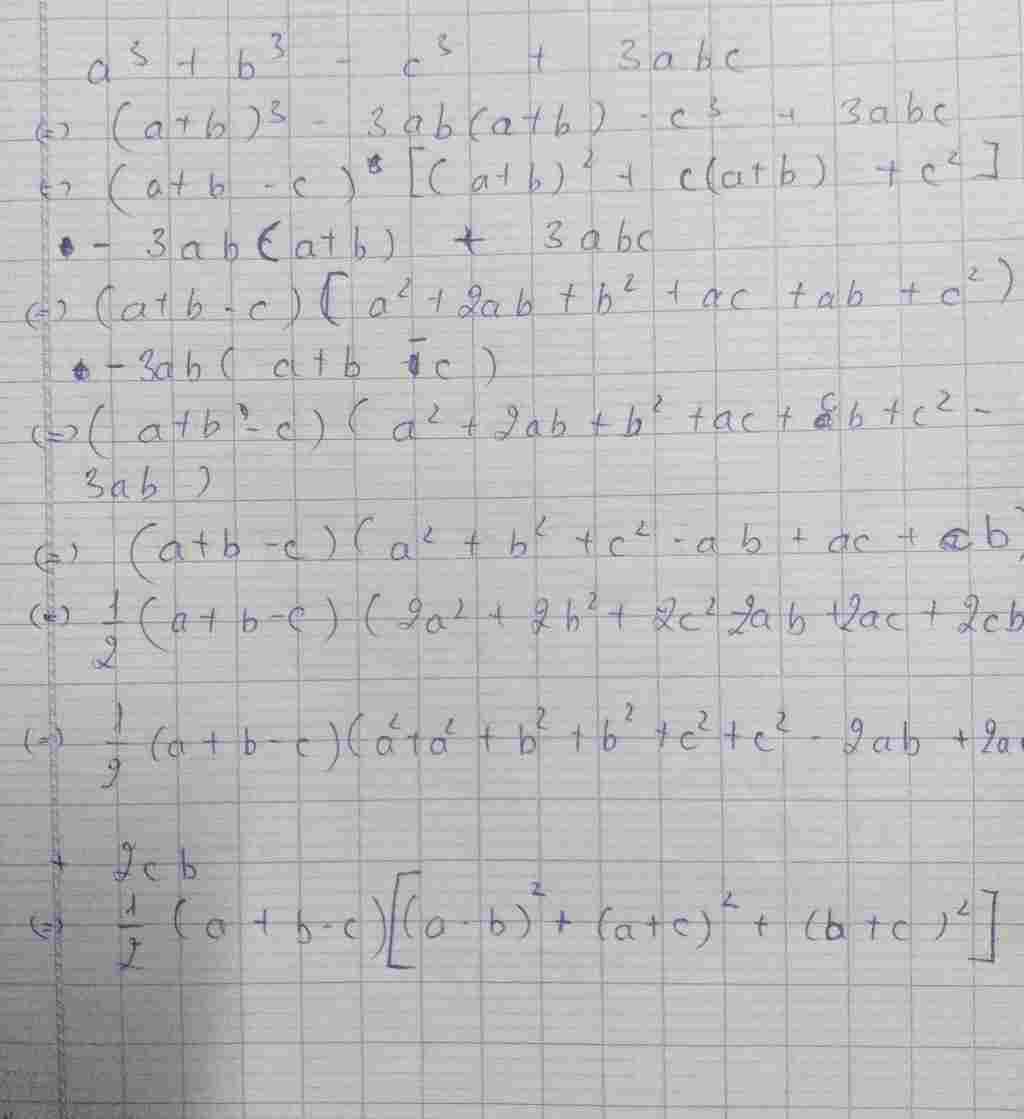 a³ + b³ - c³ + 3abc
(=) (a+b)³ - 3ab(a+b) - c³ + 3abc
(=) (a+b-c) [(a+b)² + c(a+b) + c²]
- 3ab(a+b) + 3abc
(=) (a+b-c)(a² + 2ab + b² + ac + ab + c²)
- 3ab(a+b-c)
(=) (a+b-c)(a² + 2ab + b² + ac + cb + c² -
3ab)
(=) (a+b-c)(a² + b² + c² - ab + ac + cb)
(=) 1/2 (a+b-c)(2a² + 2b² + 2c² 2ab +2ac + 2cb
(=) 1/2 (a+b-c)(a²+a² + b² + b² + c² + c² - 2ab + 2a
+ 2cb
(=) 1/2 (a+b-c)[(a-b)² + (a+c)² + (b+c)²]